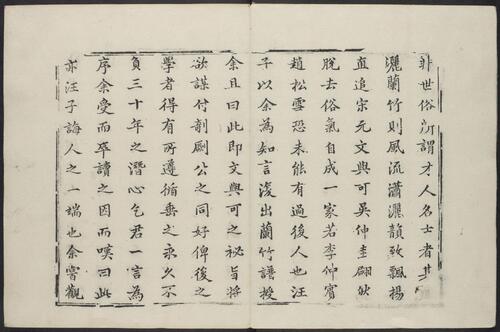 非世俗所謂才人名士者其
灑蘭竹則風流瀟灑韻致飄揚
直追宋元文與可吳仲圭翩然
脫去俗氣自成一家若李仲賓
趙松雪恐未能有過後人也汪
子以余為知言復出蘭竹譜授
余且曰此即文與可之祕旨將
欲謀付剞劂公之同好俾後之
學者得有所遵循垂之永久不
負三十年之潛心乞君一言為
序余受而卒讀之因而嘆曰此
亦汪子誨人之一端也余嘗觀